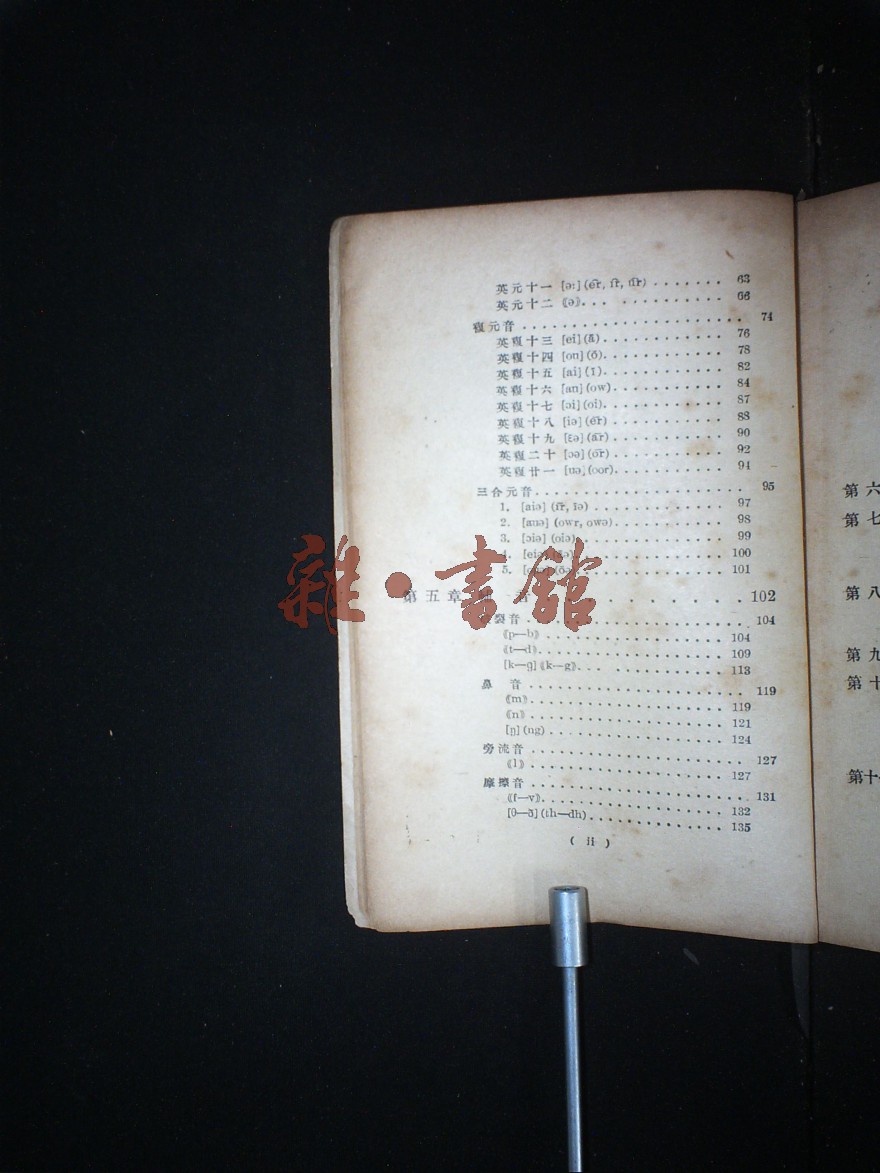 英元十一 [əː] (ẽr, ĩr, ũr) . . . . . . . 63
英元十二 《ə》. . . . . . . . . . . . 66
複元音 . . . . . . . . . . . . . . . . . . . . 74
英複十三 [ei] (ā) . . . . . . . . . . . . 76
英複十四 [ou] (ō) . . . . . . . . . . . . 78
英複十五 [ai] (ī) . . . . . . . . . . . . 82
英複十六 [au] (ow) . . . . . . . . . . . 84
英複十七 [ɔi] (oi) . . . . . . . . . . . . 87
英複十八 [iə] (ēr) . . . . . . . . . . . 88
英複十九 [ɛə] (ãr) . . . . . . . . . . . 90
英複二十 [ɔə] (ōr) . . . . . . . . . . . 92
英複廿一 [uə] (oor) . . . . . . . . . . . 94
三合元音 . . . . . . . . . . . . . . . . . . . 95
1. [aiə] (īr, īə) . . . . . . . . . . . . 97
2. [auə] (owr, owə) . . . . . . . . . . 98
3. [ɔiə] (oiə) . . . . . . . . . . . . . 99
[eiə] . . . . . . . . . . . . . 100
5. . . . . . . . . . . . . . 101
第五章 音 . . . . . . . . 102
裂音 . . . . . . . . . . . . . . . . . . 104
《p—b》 . . . . . . . . . . . . . . . 104
《t—d》 . . . . . . . . . . . . . . . 109
[k—g] 《k—g》 . . . . . . . . . . . 113
鼻 音 . . . . . . . . . . . . . . . . . . 119
《m》 . . . . . . . . . . . . . . . . 119
《n》 . . . . . . . . . . . . . . . . 121
[ŋ] (ng) . . . . . . . . . . . . . . 124
旁流音 . . . . . . . . . . . . . . . . . . 127
《l》 . . . . . . . . . . . . . . . . 127
摩擦音 . . . . . . . . . . . . . . . . . . 131
《f—v》 . . . . . . . . . . . . . . . 132
[θ—ð] (th—dh) . . . . . . . . . . . 135
( ii )
第六
第七
第八
第九
第十
第十
雜·書館